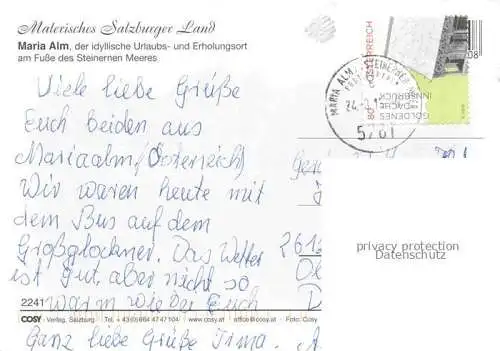 Malerisches Salzburger Land
Maria Alm, der idyllische Urlaubs- und Erholungsort
am Fuße des Steinernen Meeres
Viele liebe Grüße
Euch beiden aus
Mariaalm/Österreich
Wir waren heute mit
dem Bus auf dem
Großglockner. Das Wetter
ist gut, aber nicht so
warm wie bei Euch
Ganz liebe Grüße
2241
COSY Verlag, Salzburg Tel. +43(0)664 4747104 www.cosy.at office@cosy.at Foto: Cosy
MARIA ALM
STEINERNEN
5761
80
ÖSTERREICH
GOLDENES
DACHL
INNSBRUCK
08
2612
privacy protection
Datenschutz